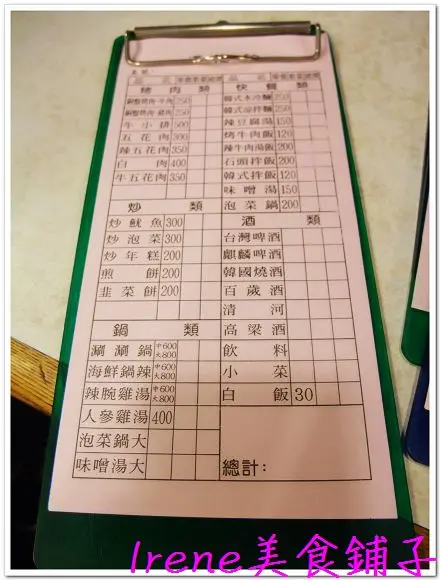 桌號
品名 單價 數量 總價
烤肉類
銅盤烤肉 牛肉 250
銅盤烤肉 豬肉 250
牛小排 500
五花肉 300
辣五花肉 350
白肉 400
牛五花肉 350
炒類
炒魷魚 300
炒泡菜 300
炒年糕 200
煎餅 200
韭菜餅 200
鍋類
涮涮鍋 中600 大800
海鮮鍋辣 中600 大800
辣腕雞湯 中600 大800
人參雞湯 400
泡菜鍋大
味噌湯大
品名 單價 數量 總價
快餐類
韓式水冷麵 250
韓式涼拌麵 250
辣豆腐湯 150
烤牛肉飯 120
辣牛肉湯飯 200
石頭拌飯 200
韓式拌飯 120
味噌湯 150
泡菜鍋 200
酒類
台灣啤酒
麒麟啤酒
韓國燒酒
百歲酒
清河
高梁酒
飲料
小菜
白飯 30
總計:
Irene美食鋪子